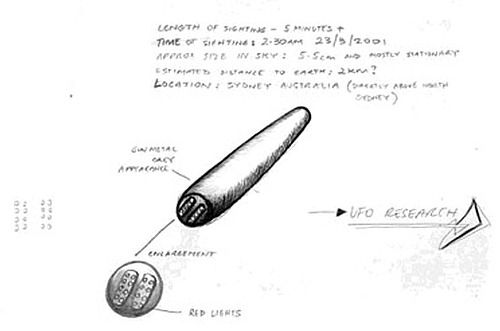 LENGTH OF SIGHTING - 5 MINUTES +
TIME OF SIGHTING: 2-30AM 23/9/2001
APPROX SIZE IN SKY: 5-5cm AND MOSTLY STATIONARY
ESTIMATED DISTANCE TO EARTH: 2KM?
LOCATION: SYDNEY AUSTRALIA (DIRECTLY ABOVE NORTH
SYDNEY)
GUNMETAL
GREY
APPEARANCE
UFO RESEARCH
ENLARGEMENT
RED LIGHTS